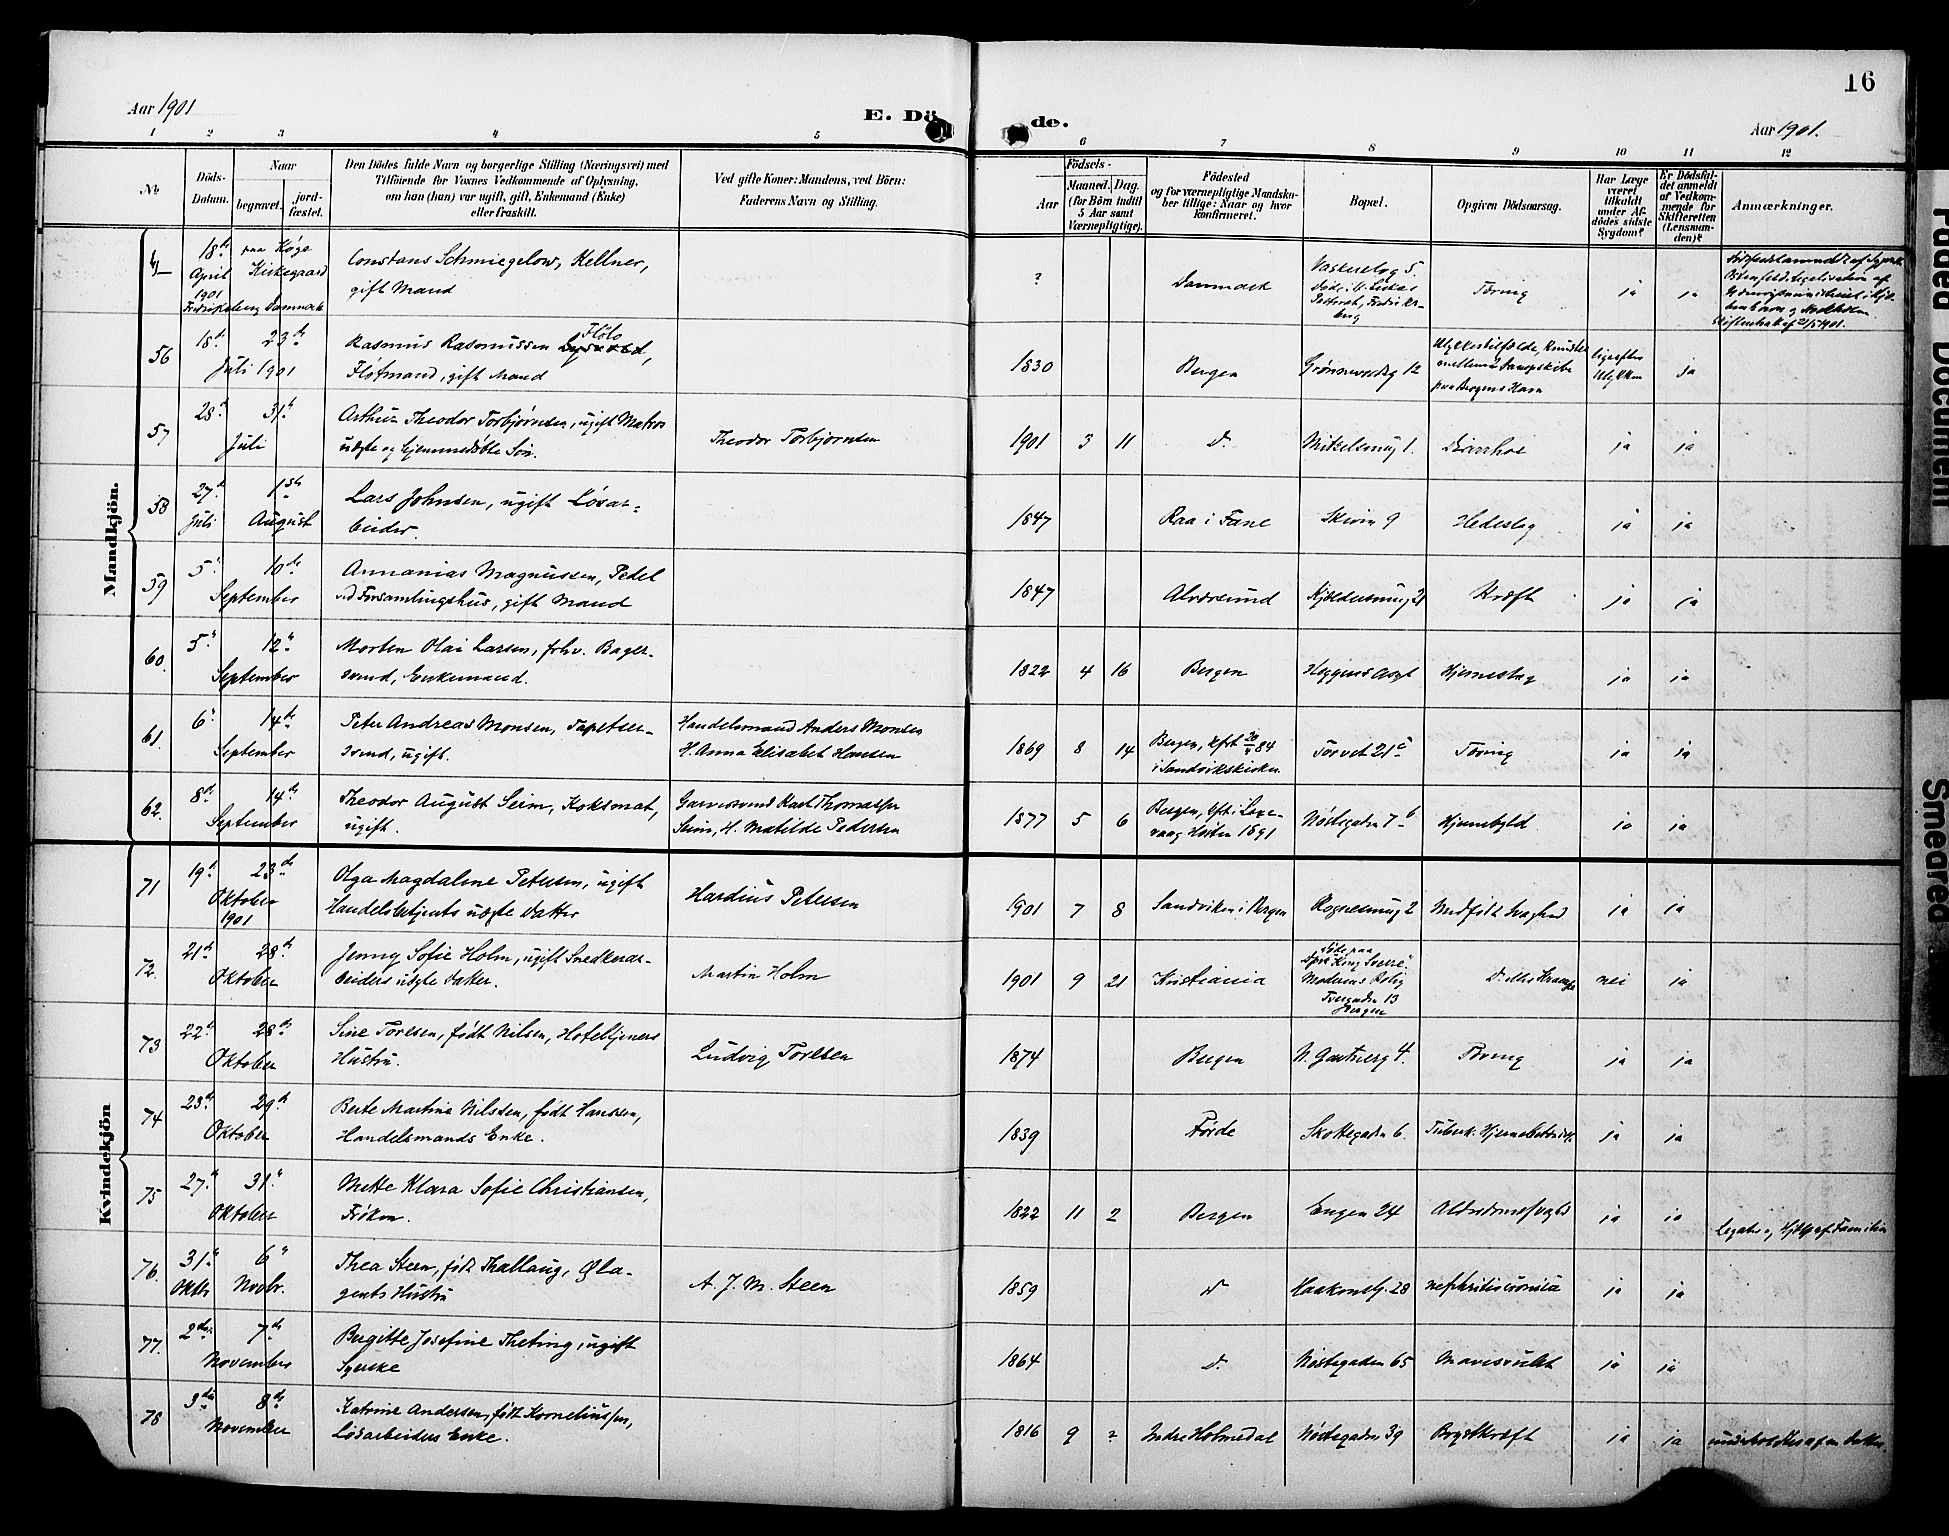 16
Aar 1901
E. Dö
de.
Aar 1901.
1 2 3 4 5 6 7 8 9 10 11 12
No
Döds-
Datum.
Naar
begravet.
jord-
fæstet.
Den Dödes fulde Navn og borgerlige Stilling (Næringsvei) med
Tilföiende for Voxnes Vedkommende af Oplysning,
om han (hun) var ugift, gift, Enkemand (Enke)
eller fraskilt.
Ved gifte Koner: Mandens, ved Börn:
Faderens Navn og Stilling.
Födsels-
Aar
Maaned.
Dag.
(for Börn indtil
5 Aar samt
Værnepligtige).
Födested
og for værnepligtige Mandska-
ber tillige: Naar og hvor
konfirmeret.
Bopæl.
Opgiven Dödsaarsag.
Har Læge
været
tilkaldt
under Af-
dödes sidste
Sygdom?
Er Dödsfal-
det anmeldt
af Vedkom-
mende for
Skifteretten
(Lensman-
den)?
Anmærkninger.
Mandkjön.
18de April 1901 Fredriksberg Danmark
paa Køge Kirkegaard
Constans Schmiegelow, Kellner,
gift Mand
?
Danmark
Vaskerelvg 5.
Tæring
ja
ja
56
18de 23de
Juli 1901
Rasmus Rasmussen Fløto
Fløtmand, gift Mand
1830
Bergen
Grønnevoldsg 12
Ulykkestilfælde, Knustes
mellem Dampskibe
paa Bergens Havn
ja
57
28de 31te
Juli
Arthur Theodor Torbjørnsen, ugift Matros
uægte og hjemmedøbte Søn.
Theodor Torbjørnsen
1901 3 11
Do
Mikkelsmug 1.
Diarrhoe
ja
ja
58
27de Juli
1ste August
Lars Johnsen, ugift Løsar-
beider.
1847
Raa i Fane
Skivin 9
Hedeslag
ja
ja
59
5te 10de
September
Annanias Magnussen, Pedel
ved Forsamlingshus, gift Mand
1847
Alversund
Kjeldersmug 21
Kræft
ja
ja
60.
5te 12te
September
Morten Olai Larsen, forhv. Bager-
svend, Enkemand.
1822 4 16
Bergen
Heggens Asyl
Hjerneslag
ja
ja
61.
6te 14de
September
Peter Andreas Monsen, Tapetser-
svend, ugift.
Handelsmand Anders Monsen
H. Anna Elisabet Hansen
1869 8 14
Bergen, kfrt 20/4 84
i Sandvikskirken
Torvet 21c
Tæring
ja
ja
62.
8de 14de
September
Theodor August Seim, Koksmat,
ugift.
Garversvend Karl Thomassen
Seim, H. Matilde Pedersen
1877 5 6
Bergen, kft. i Laxe-
vaag Høsten 1891
Nøstegaden 7b
Hjernebyld
ja
ja
Kvindekjön
71
19de 23de
Oktober
1901
Olga Magdalene Petersen, ugift
Handelsbetjents uægte Datter
Hardius Petersen
1901 7 8
Sandviken i Bergen
Rognesmug 2
Medfødt Svaghed
ja
ja
72.
21de 28de
Oktober
Jenny Sofie Holm, ugift Snedkerar-
beiders uægte Datter.
Martin Holm
1901 9 21
Kristiania
Døde paa
Dpsk "Kong Sverre".
Moderens Bolig
Tvergaden 13
Bergen
nei
ja
73
22de 28de
Oktober
Sine Toresen, født Nilsen, Hoteltjeners
Hustru.
Ludvig Toresen
1874
Bergen
N. Gartnerg 4.
Tæring
ja
ja
74
23de 29de
Oktober
Berte Martine Nilssen, født Hanssen,
Handelsmands Enke.
1839
Førde
Skottegaden 6.
Tuberk. Hjernebetændelse
ja
ja
75
27de 31te
Oktober
Mette Klara Sofie Christiansen,
Frøken.
1822 11 2
Bergen
Engen 24
Alderdomssvaghed
ja
ja
Legater og Hjælp af Familien
76.
31te Oktbr
6te Novbr.
Thea Steen, født Thallaug, Øla-
gents Hustru
A. J. M. Steen
1859
Do
Haakonsg. 28
nephritis cronica
ja
ja
77.
2den 7de
November
Bergitte Josefine Theting, ugift
Syerske
1864
Do
Nøstegaden 65
Mavesvulst
ja
ja
78
3die 8de
November
Katrine Andersen, født Korneliussen,
Løsarbeiders Enke.
1816 9 ?
Indre Holmedal
Nøstegaden 39
Brystkræft
ja
ja
underholdtes af en Datter.
Faded Document
Smeared